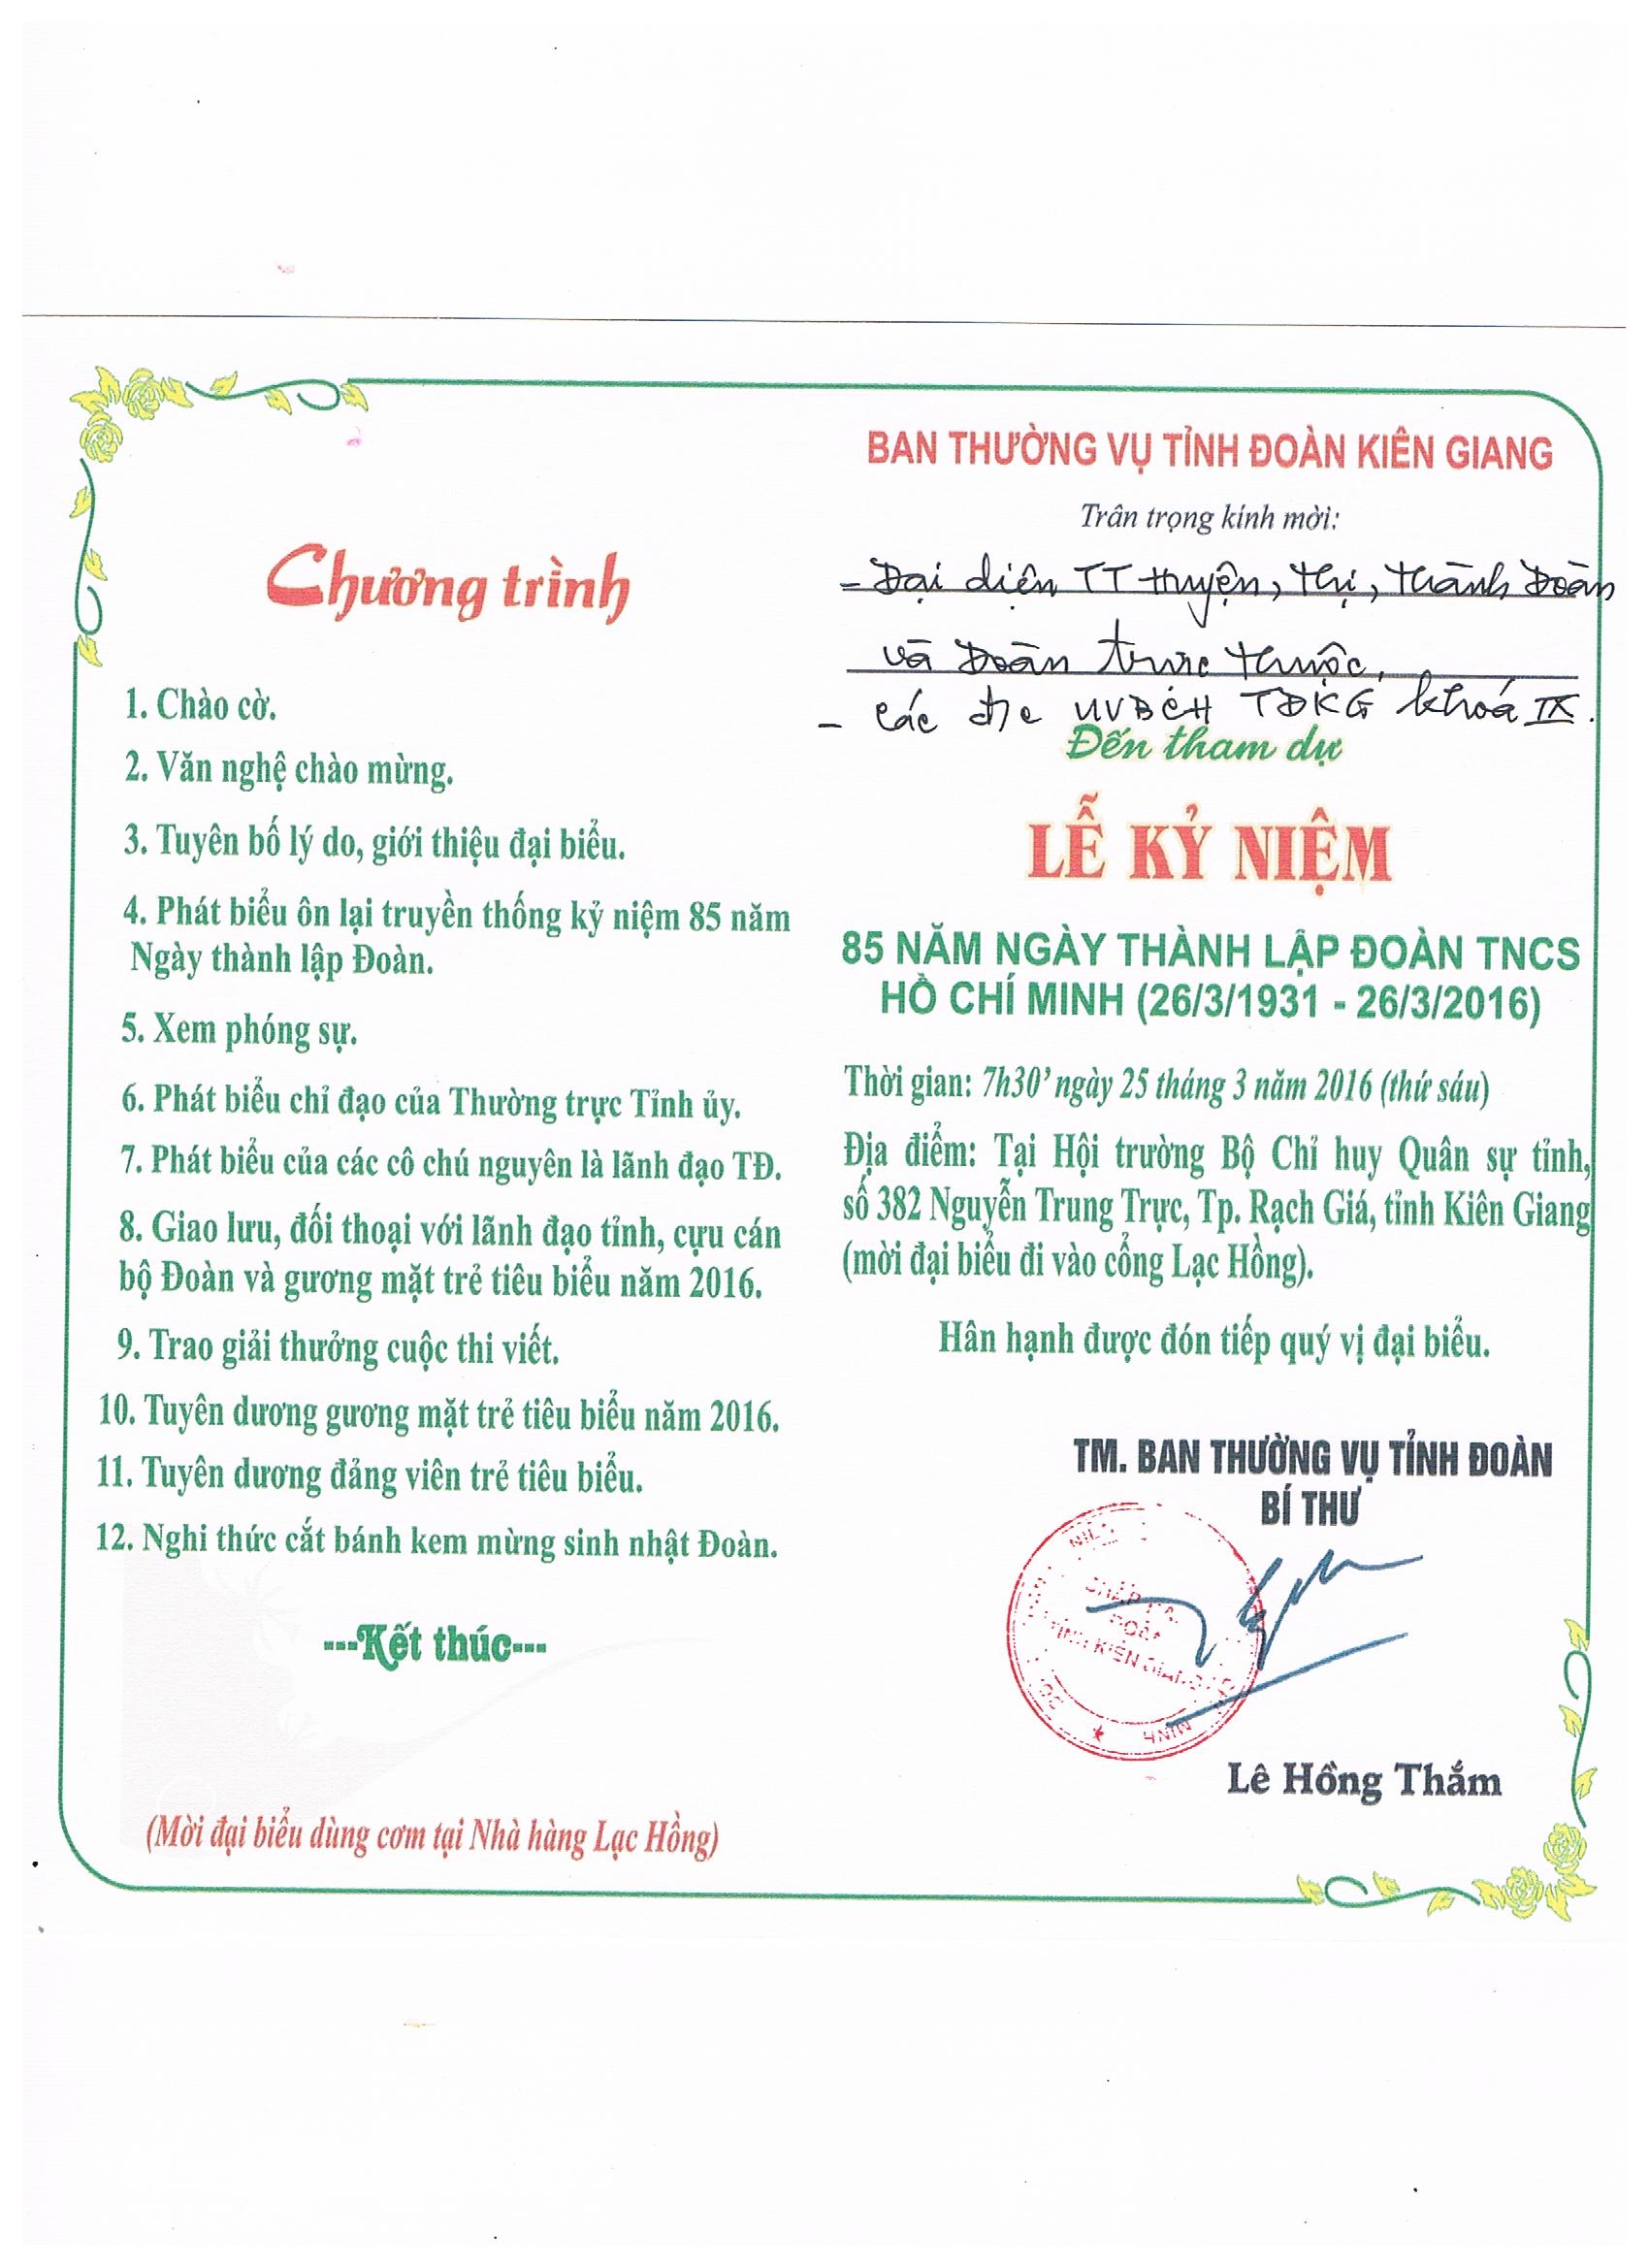 Chương trình
1. Chào cờ.
2. Văn nghệ chào mừng.
3. Tuyên bố lý do, giới thiệu đại biểu.
4. Phát biểu ôn lại truyền thống kỷ niệm 85 năm
Ngày thành lập Đoàn.
5. Xem phóng sự.
6. Phát biểu chỉ đạo của Thường trực Tỉnh ủy.
7. Phát biểu của các cô chú nguyên là lãnh đạo TĐ.
8. Giao lưu, đối thoại với lãnh đạo tỉnh, cựu cán
bộ Đoàn và gương mặt trẻ tiêu biểu năm 2016.
9. Trao giải thưởng cuộc thi viết.
10. Tuyên dương gương mặt trẻ tiêu biểu năm 2016.
11. Tuyên dương đảng viên trẻ tiêu biểu.
12. Nghi thức cắt bánh kem mừng sinh nhật Đoàn.
---Kết thúc---
(Mời đại biểu dùng cơm tại Nhà hàng Lạc Hồng)
BAN THƯỜNG VỤ TỈNH ĐOÀN KIÊN GIANG
Trân trọng kính mời:
- Đại diện TT Huyện, Thị, Thành Đoàn
và Đoàn trực thuộc.
- Các đ/c UVBCH TĐKG khoá IX.
Đến tham dự
LỄ KỶ NIỆM
85 NĂM NGÀY THÀNH LẬP ĐOÀN TNCS
HỒ CHÍ MINH (26/3/1931 - 26/3/2016)
Thời gian: 7h30’ ngày 25 tháng 3 năm 2016 (thứ sáu)
Địa điểm: Tại Hội trường Bộ Chỉ huy Quân sự tỉnh,
số 382 Nguyễn Trung Trực, Tp. Rạch Giá, tỉnh Kiên Giang
(mời đại biểu đi vào cổng Lạc Hồng).
Hân hạnh được đón tiếp quý vị đại biểu.
TM. BAN THƯỜNG VỤ TỈNH ĐOÀN
BÍ THƯ
TỈNH KIÊN GIANG
MINH
Lê Hồng Thắm